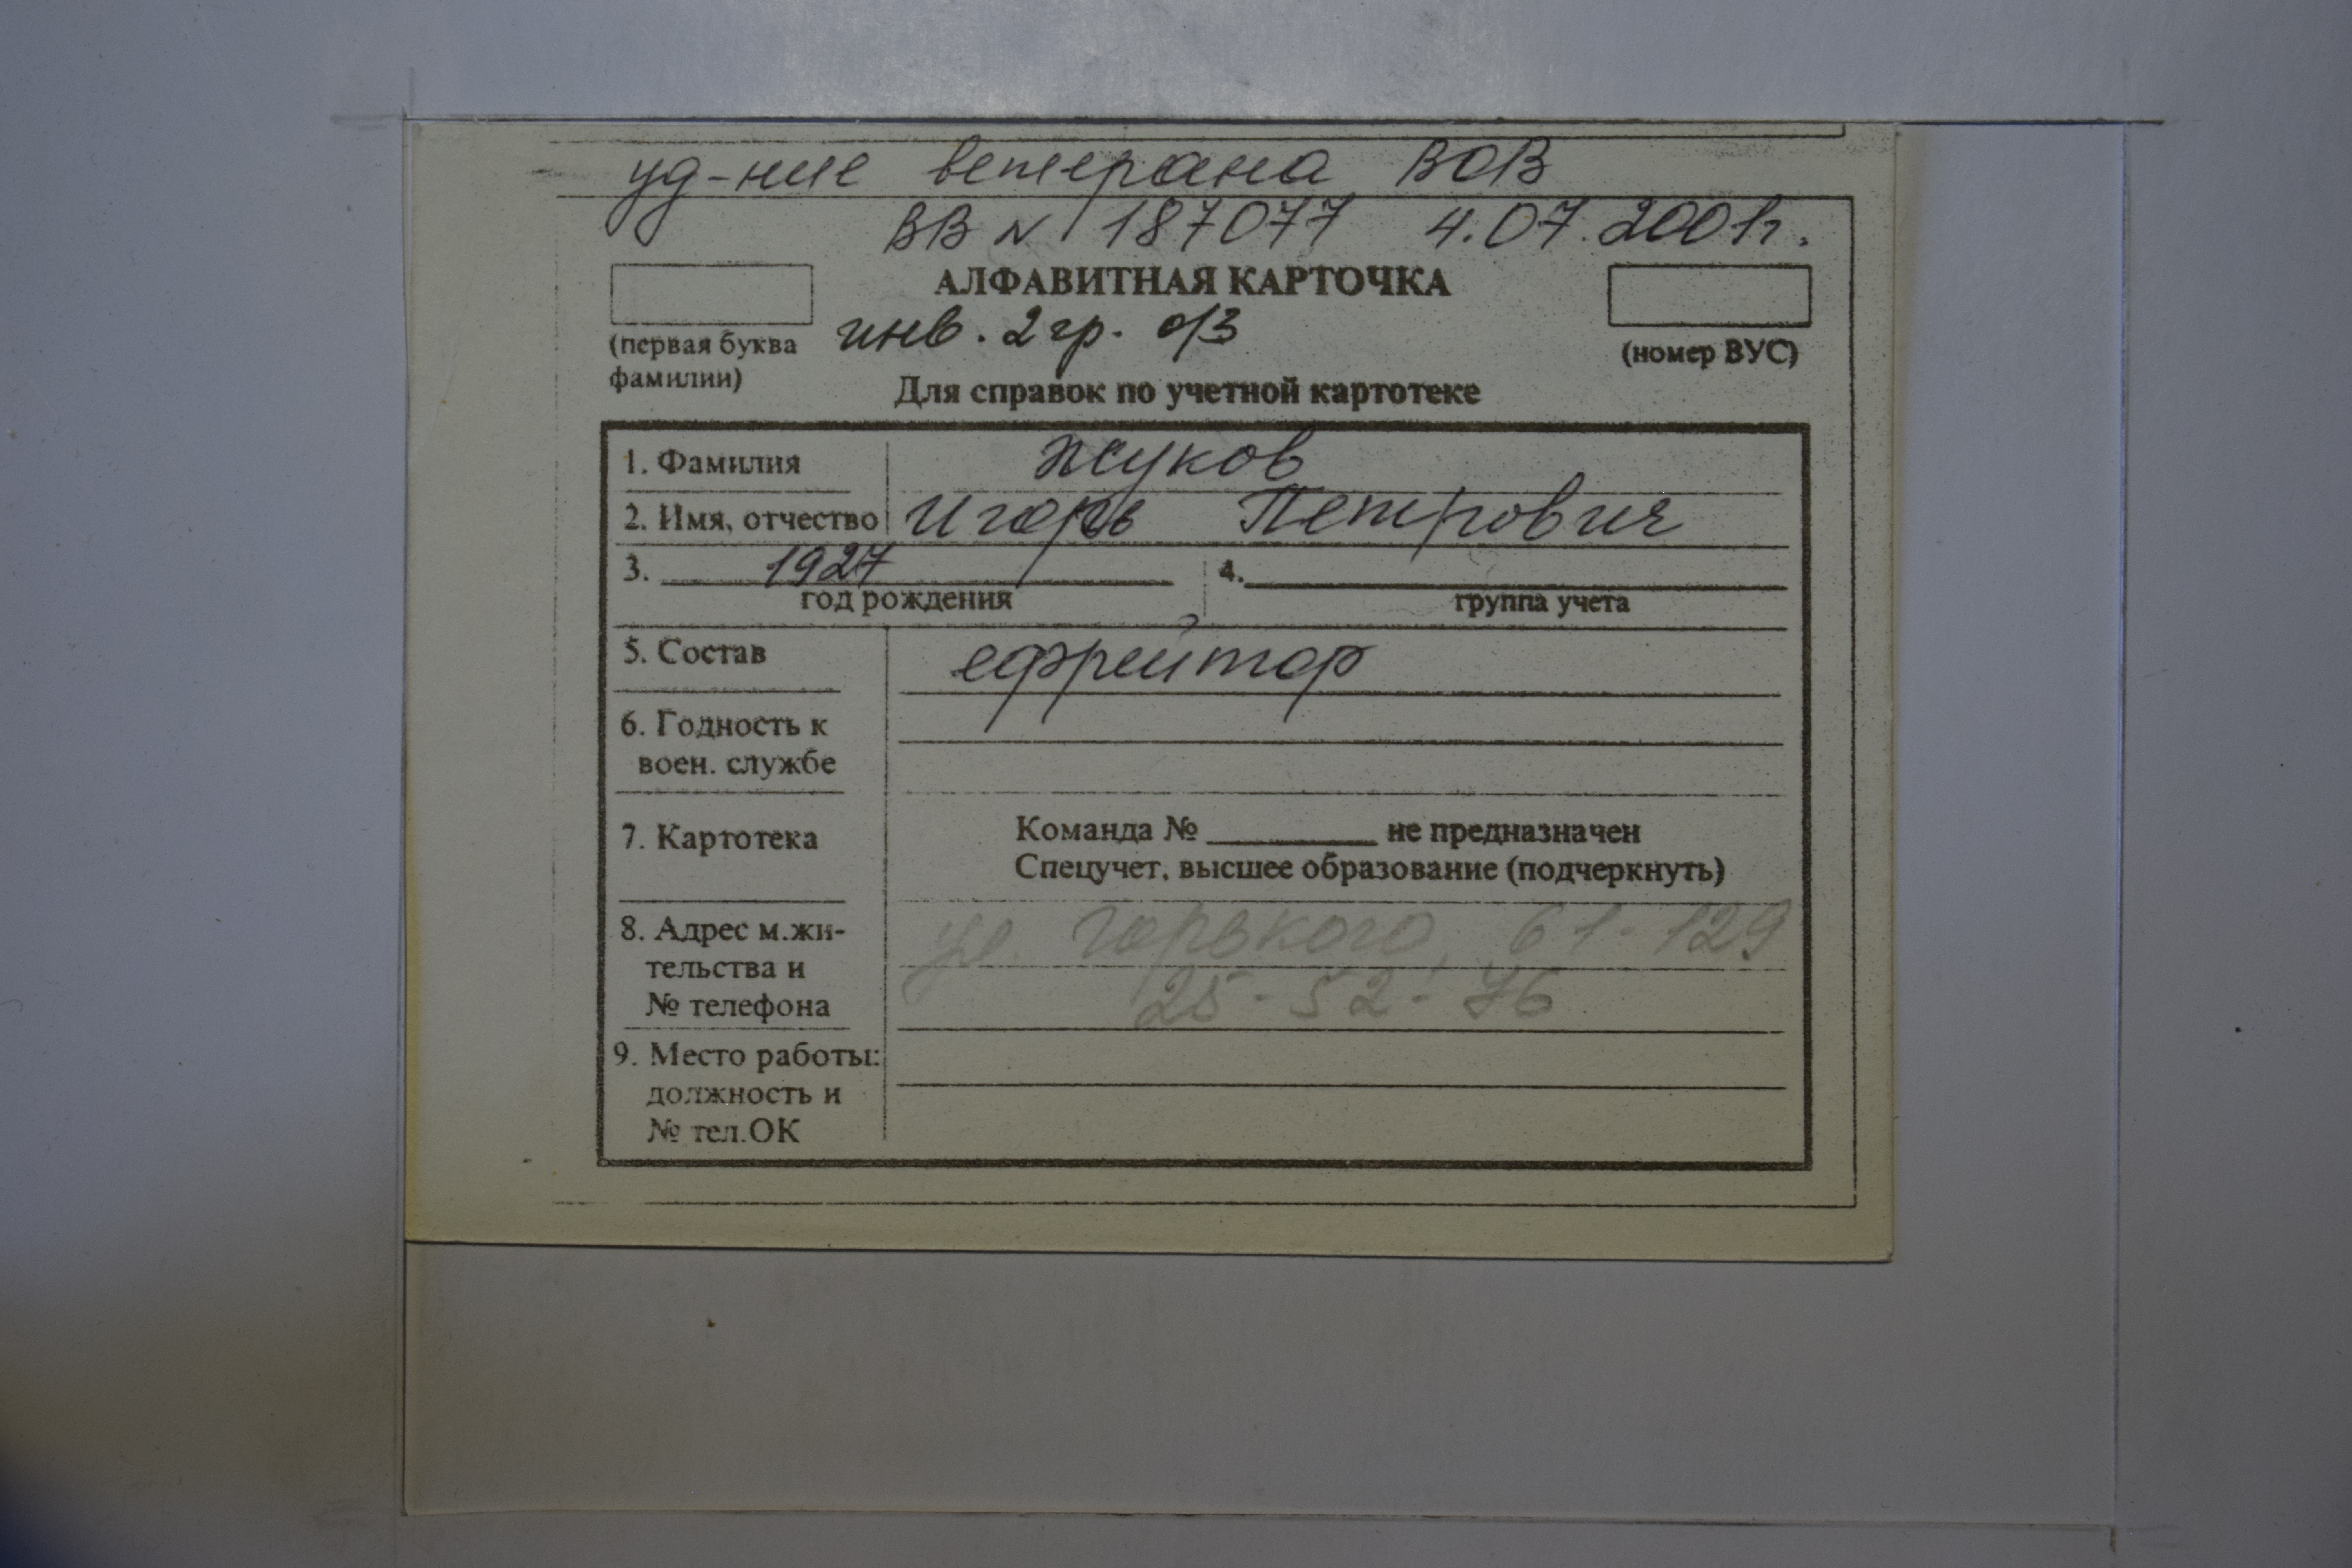 уд-ние ветерана ВОВ
ВВ № 187077 4.07.2001г.
АЛФАВИТНАЯ КАРТОЧКА
инв. 2 гр. о/з
(первая буква фамилии)
(номер ВУС)
Для справок по учетной картотеке
1. Фамилия Жуков
2. Имя, отчество Игорь Петрович
3. 1927 4.
год рождения группа учета
5. Состав ефрейтор
6. Годность к
воен. службе
7. Картотека Команда № ______ не предназначен
Спецучет, высшее образование (подчеркнуть)
8. Адрес м.жи- ул. Горького, 61-129
тельства и 25-52-76
№ телефона
9. Место работы:
должность и
№ тел.ОК